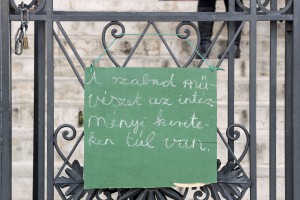 A szabad mű-
vészet az intéz-
ményi kerete-
ken túl van.